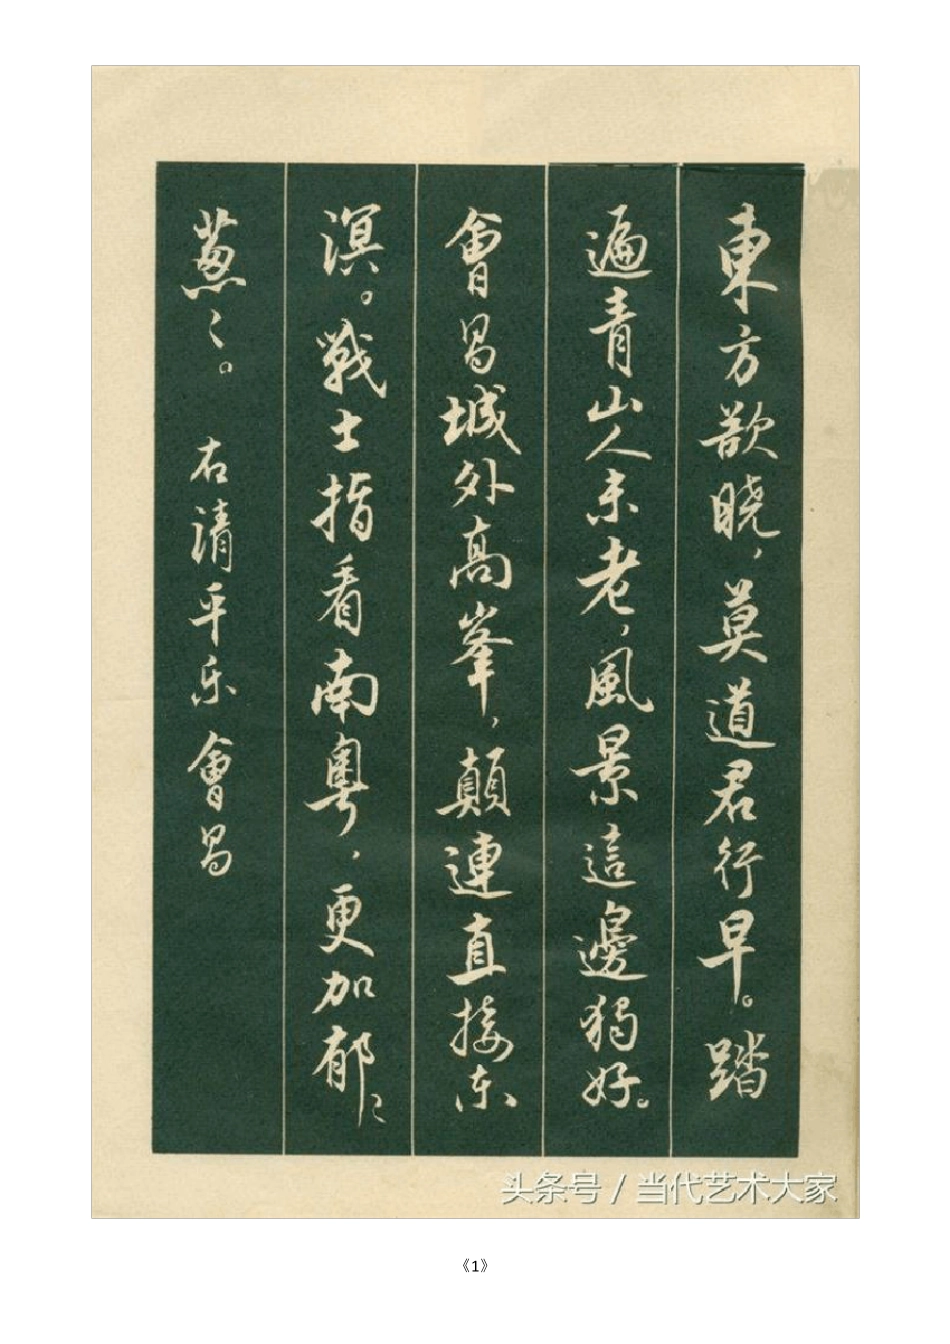 東方欲曉，莫道君行早。踏
遍青山人未老，風景這邊獨好。
會昌城外高峯，顛連直接东
溟。戰士指看南粵，更加郁〻
葱〻。 右清平乐 會昌
头条号 / 当代艺术大家
《1》